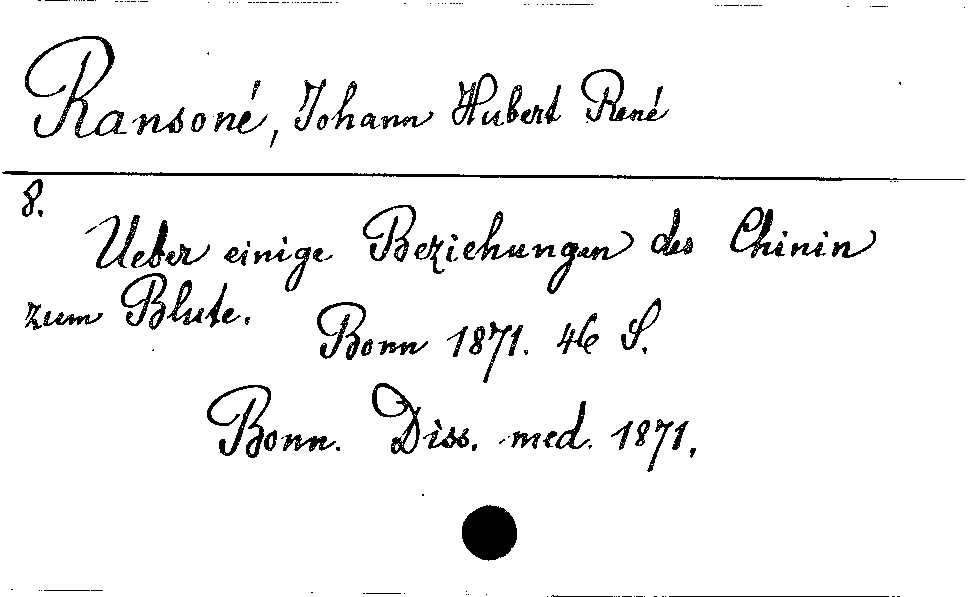 Ransoné, Johann Hubert René
8.
Ueber einige Beziehungen des Chinin
zum Blute.
Bonn 1871. 46 S.
Bonn. Diss. med. 1871.